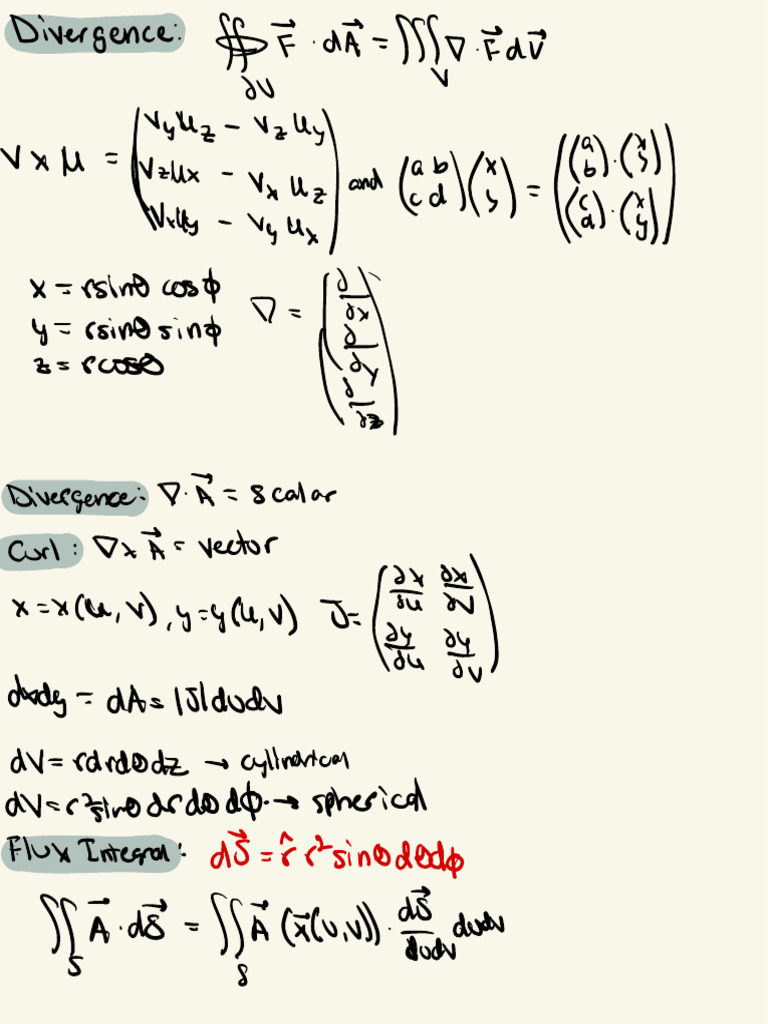 Divergence: ∯_∂V F⃗ · dA⃗ = ∭_V ∇ · F⃗ dV⃗
V × μ = (V_y μ_z − V_z μ_y ; V_z μ_x − V_x μ_z ; V_x μ_y − V_y μ_x) and (a b ; c d)(x ; y) = ((a ; b) · (x ; y) ; (c ; d) · (x ; y))
x = rsinθ cosϕ
y = rsinθ sinϕ
z = rcosθ
∇ = (∂/∂x ; ∂/∂y ; ∂/∂z)
Divergence: ∇ · A⃗ = scalar
Curl: ∇ × A⃗ = vector
x = x(u, v), y = y(u, v) J = (∂x/∂u ∂x/∂v ; ∂y/∂u ∂y/∂v)
dxdy = dA = |J| dudv
dV = rdrdθdz → cylindrical
dV = r² sinθ drdθdϕ. → spherical
Flux Integral: dS⃗ = r̂ r² sinθdθdϕ
∬_S A⃗ · dS⃗ = ∬_S A⃗ (x⃗(u,v)) · dS⃗/dudv dudv